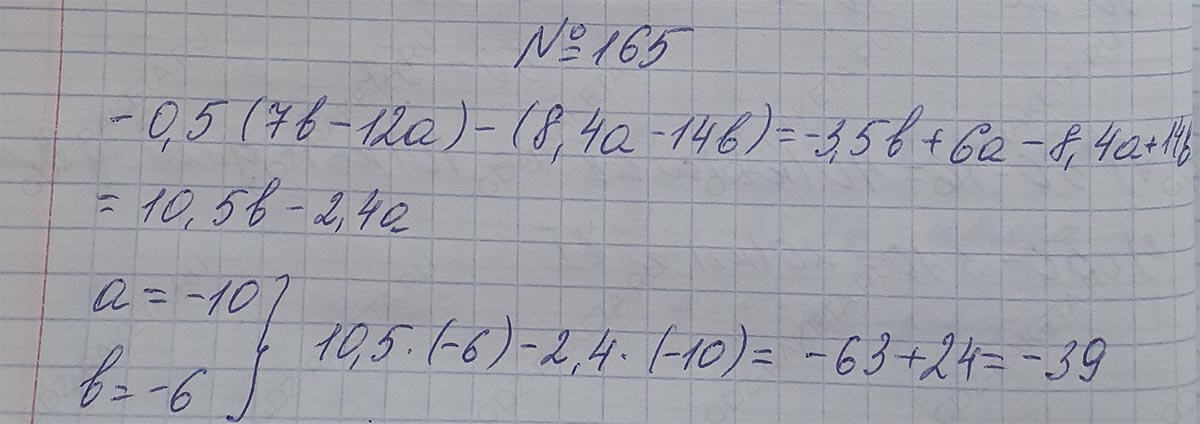 №165
-0,5(7b-12a)-(8,4a-14b)=-3,5b+6a-8,4a+14b
=10,5b-2,4a
a=-10
b=-6
10,5·(-6)-2,4·(-10)= -63+24=-39